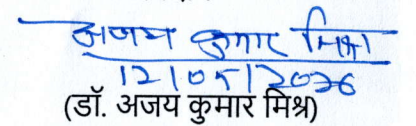 अजय कुमार मिश्रा
12/05/2026
(डॉ. अजय कुमार मिश्र)